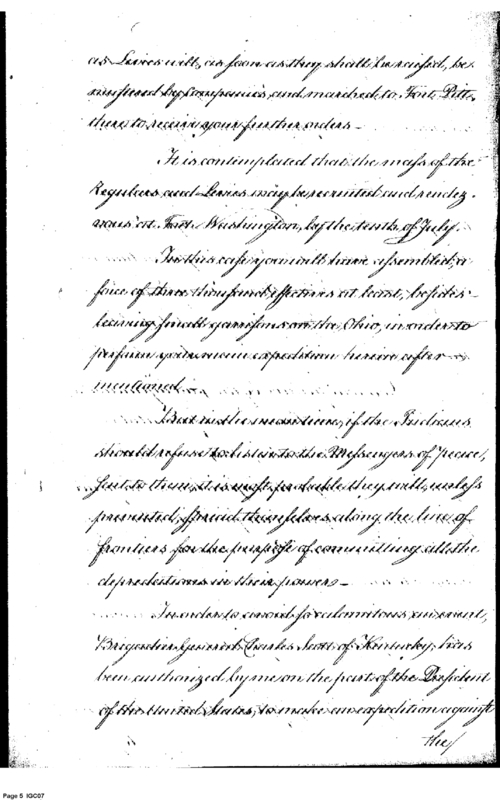 as Levies will, as soon as they shall be raised, be
mustered by Companies, and marched to Fort Pitt,
there to receive your further orders —
It is contemplated that the mass of the
Regulars and Levies may be recruited and rendez-
vous at Fort Washington, by the tenth of July.
In this case you will have assembled, a
force of three thousand effectives at least, besides
leaving small garrisons on the Ohio, in order to
perform your main expedition herein after
mentioned —
But in the mean time, if the Indians
should refuse to listen to the Messengers of Peace,
sent to them, it is most probable they will, unless
prevented, spread themselves along the line of
frontiers for the purpose of committing all the
depredations in their power —
In order to avoid so calamitous an event,
Brigadier General Charles Scott of Kentucky, has
been authorized by me on the part of the President
of the United States, to make an expedition against
the/
Page 5 IGC07